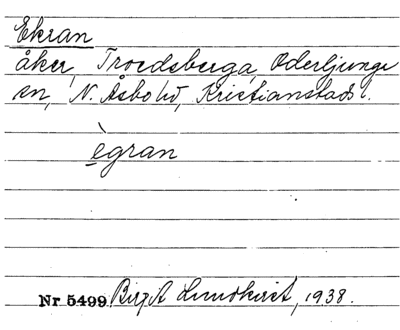 Ekran
åker, Troedsberga, Oderljunga
sn, N. Åsbo hd, Kristianstads l.
ègran
Nr 5499 Birgit Lundkvist, 1938.